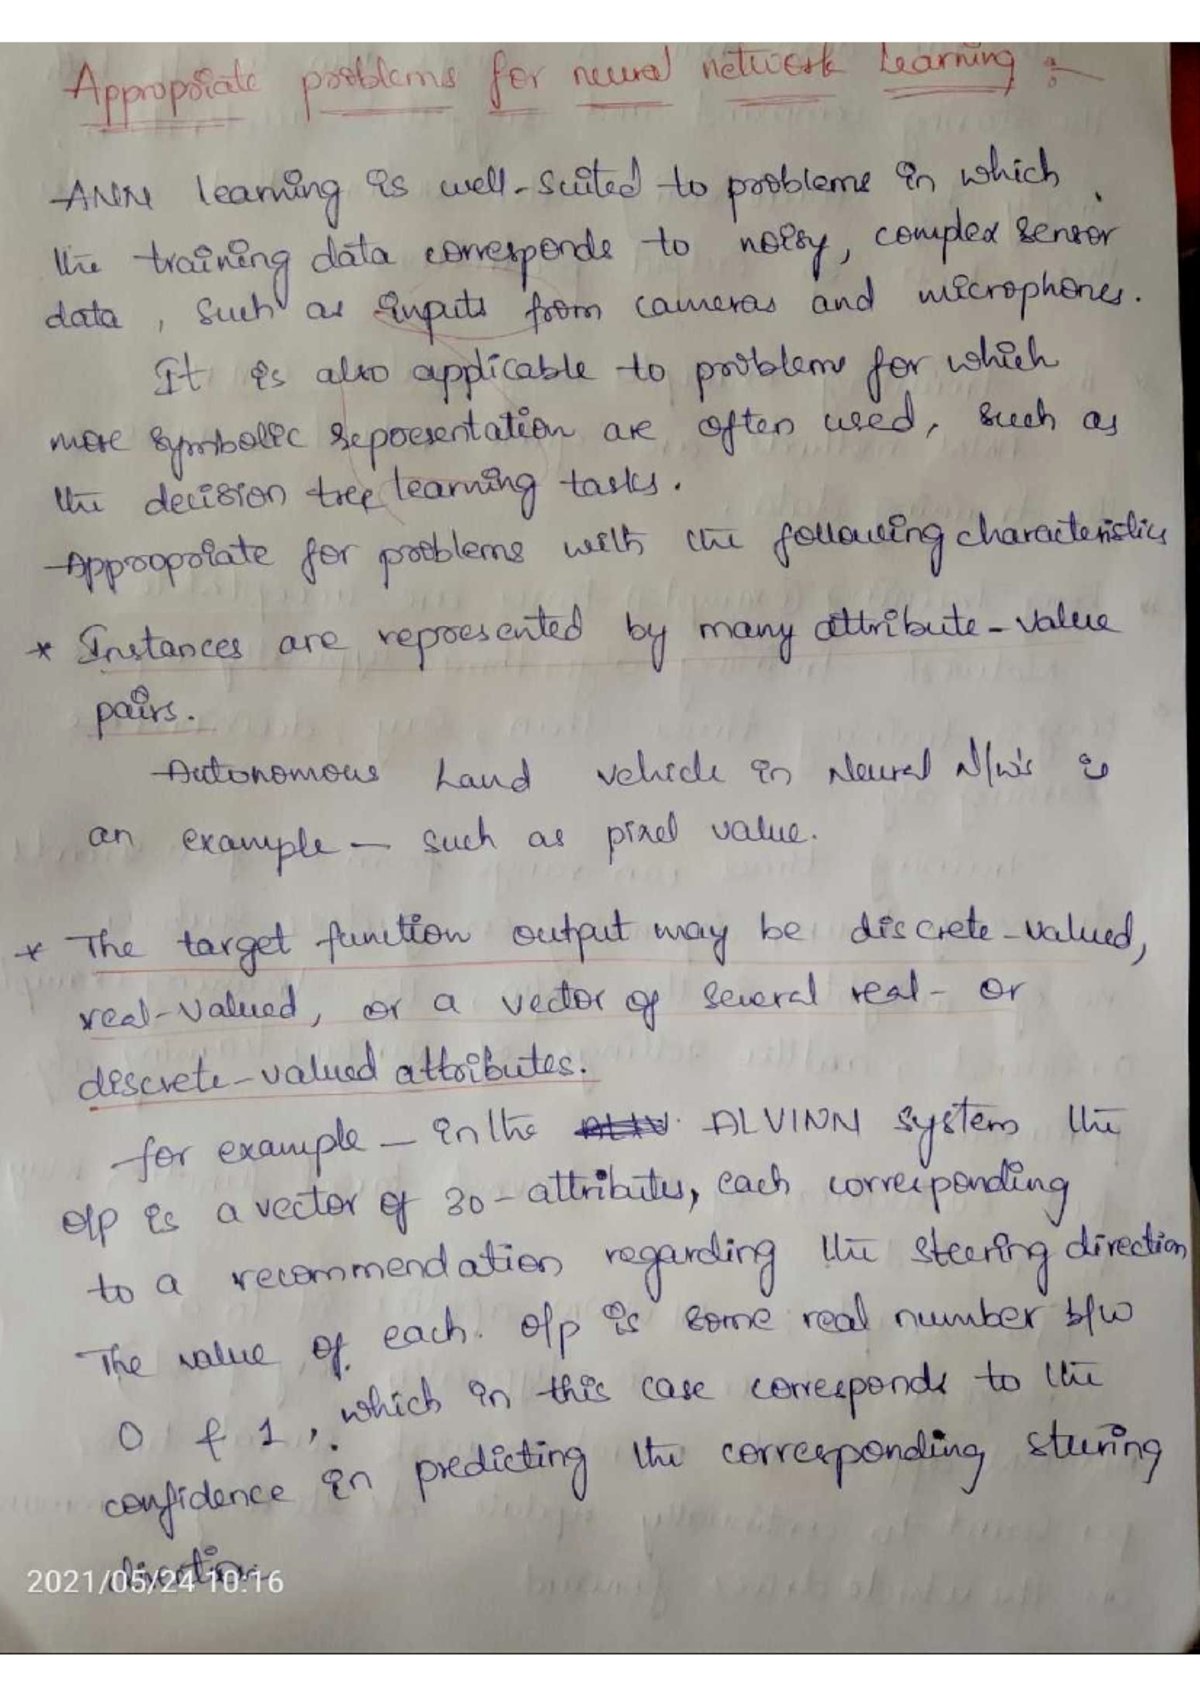 Appropriate problems for neural network learning :-
ANN learning is well-suited to problems in which
the training data corresponds to noisy, complex sensor
data, such as inputs from cameras and microphones.
It is also applicable to problems for which
more symbolic representation are often used, such as
the decision tree learning tasks.
Appropriate for problems with the following characteristics
* Instances are represented by many attribute-value
pairs.
Autonomous Land vehicle in Neural N/w's is
an example - such as pixel value.
* The target function output may be discrete-valued,
real-valued, or a vector of several real- or
discrete-valued attributes.
for example - in the ALVINN system the
o/p is a vector of 30-attributes, each corresponding
to a recommendation regarding the steering direction
The value of each o/p is some real number b/w
0 & 1, which in this case corresponds to the
confidence in predicting the corresponding steering
direction
2021/05/24 10:16